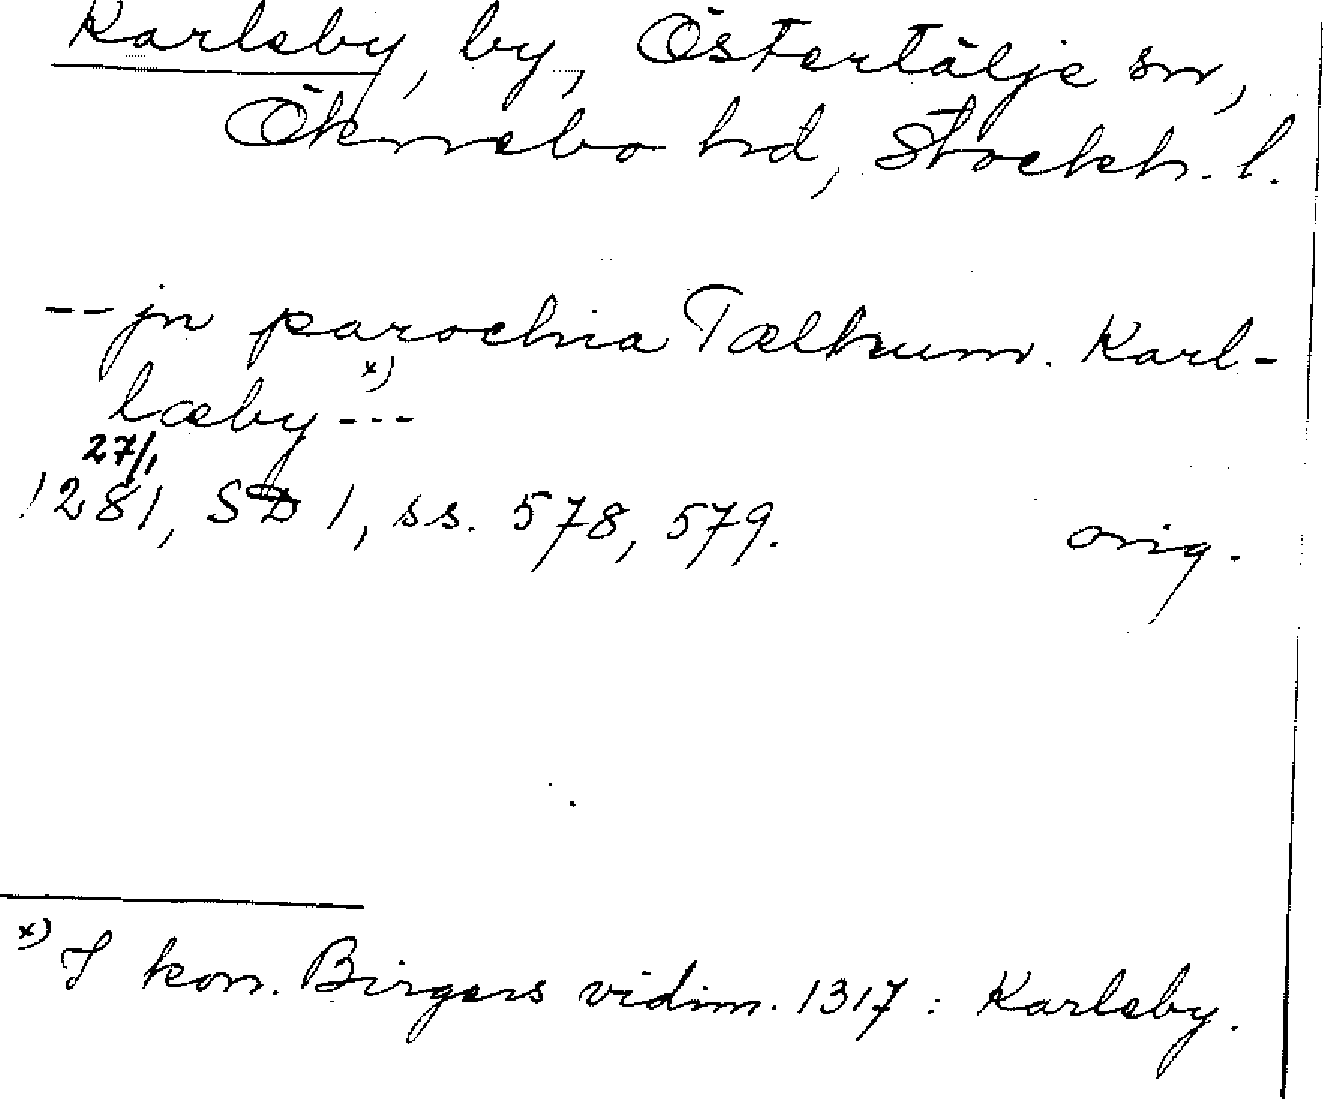 Karleby, by, Östertälje sn,
Öknebo hd, Stockh. l.
--jn parochia Tælhum. Karl-
læby x) ---
27/1
1281, SD 1, ss. 578, 579. orig.
x) I kon. Birgers vidim. 1317: Karleby.